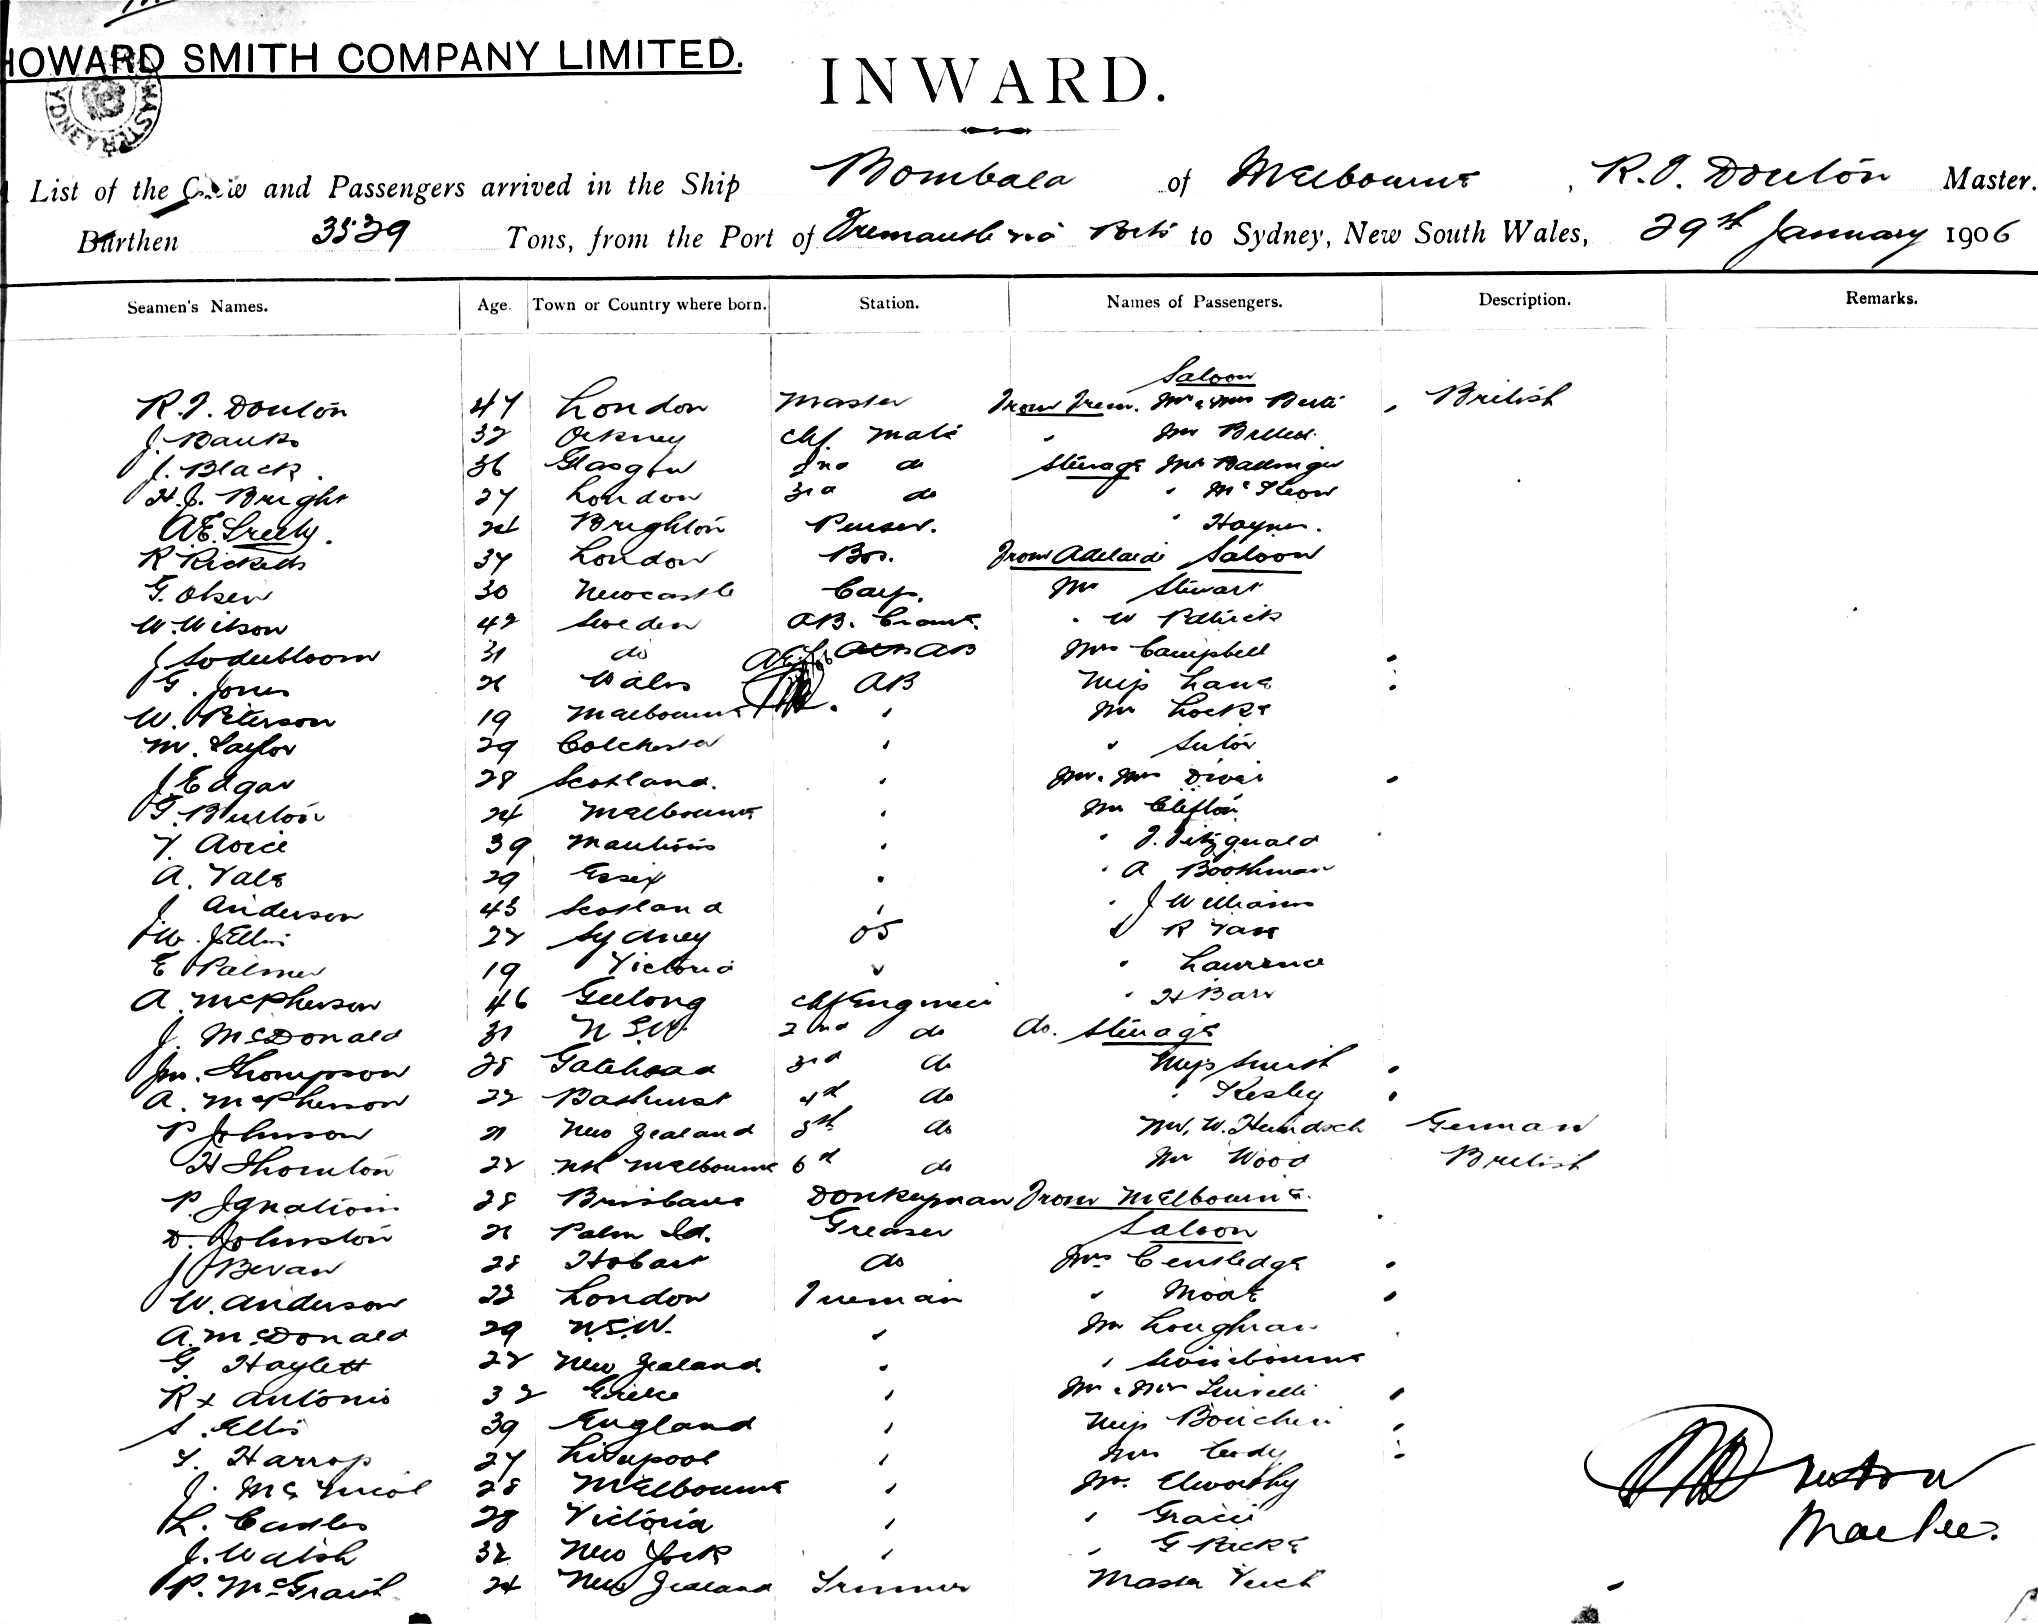 HOWARD SMITH COMPANY LIMITED.
INWARD.
List of the Crew and Passengers arrived in the Ship Bombala of Melbourne, R.I. Douton Master.
Burthen 3539 Tons, from the Port of Fremantle via Ports to Sydney, New South Wales, 29th January 1906
Seamen's Names. Age. Town or Country where born. Station. Names of Passengers. Description. Remarks.
Saloon
R.I. Douton 47 London Master From Frem. Mr & Mrs British
J. Banks 32 Orkney Chf. Mate Mr
J. Black. 36 Glasgow 2nd do Steerage Mr
H.J. Bright 27 London 3rd do " McKeow
A.E. 24 Brighton Purser. " Haynes.
R Ricketts 37 London Bos. From Adelaide Saloon
G. Olsen 30 Newcastle Carp. Mr Stewart
W. Wilson 42 Sweden AB. " W Patrick
J Soderbloom 31 do AB Mrs Campbell
G. Jones 21 Wales AB Miss Lane
W. Peterson 19 Melbourne " Mr Locke
M. Taylor 29 Colchester " " Sutor
J Edgar 28 Scotland. " Mr. Mrs
G. Burton 24 Melbourne " Mr Clifton
39 Mauritius " " J. Fitzgerald
A. Vale 29 Essex " " A Boothman
J. Anderson 43 Scotland " " J Williams
W. J Ellis 22 Sydney OS " R
E Palmer 19 Victoria " " Lawrence
A. McPherson 46 Geelong Chf Engineer " H Barr
J. McDonald 31 N.S.W. 2nd do do. Steerage
Jas. Thompson 28 Gateshead 3rd do Miss Smith
A. McPherson 22 Bathurst 4th do " Kesley
P Johnson 21 New Zealand 5th do Mr. W. German
H Thornton 22 Nth Melbourne 6th do Mr Wood British
P. Ignatious 28 Brisbane Donkeyman From Melbourne.
D. Johnston 21 Palm Id. Greaser Saloon
J Bevan 28 Hobart do Mrs
W. Anderson 23 London Fireman " Moat
A. McDonald 29 N.S.W. " Mr Loughran
G. Haylett 22 New Zealand. " " Swinbourne
R x Antonio 32 Greece " Mr & Mrs
S. Ellis 39 England " Miss
T. Harrop 27 Liverpool " Mrs
J. McNicol 28 Melbourne " Mr. Elworthy
L. 28 Victoria " " Gracie
J. Walsh 32 New York " " G
P. McGrath 24 New Zealand Trimmer Master
Master.